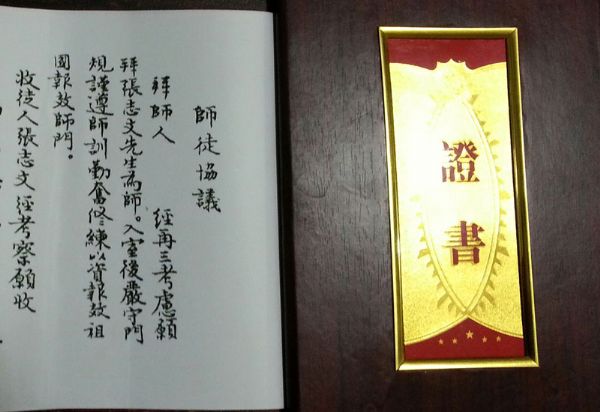 證書
師徒協議
拜師人 經再三考慮願
拜張志文先生為師。入室後嚴守門
規謹遵師訓勤奮修練以資報效祖
國報效師門。
收徒人張志文經考察願收